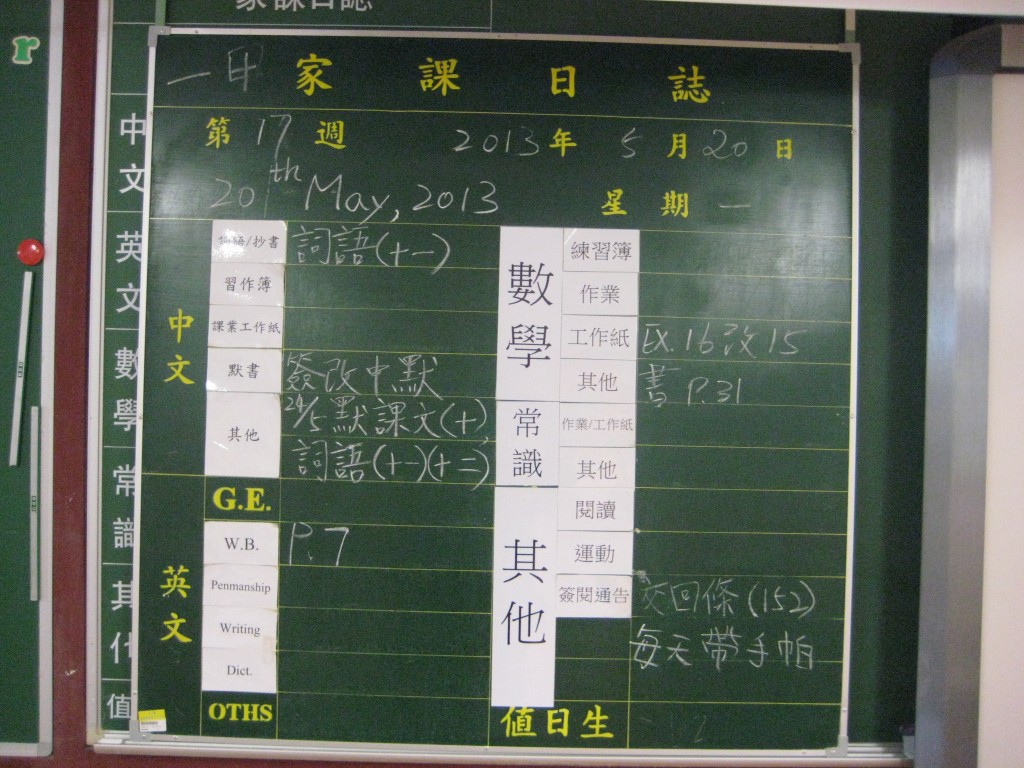 家課日誌
r
中文英文數學常識其他值
一甲 家課日誌
第 17 週 2013 年 5 月 20 日
20th May, 2013 星期 一
中文
詞語/抄書 詞語(十一)
習作簿
課業工作紙
默書 簽改中默
其他 24/5 默課文(十),
詞語(十一)(十二)
英文
G.E.
W.B. P.7
Penmanship
Writing
Dict.
OTHS
數學
練習簿
作業
工作紙 EX.16改15
其他 書 P.31
常識
作業/工作紙
其他
其他
閱讀
運動
簽閱通告 交回條(152)
每天帶手帕
值日生 2